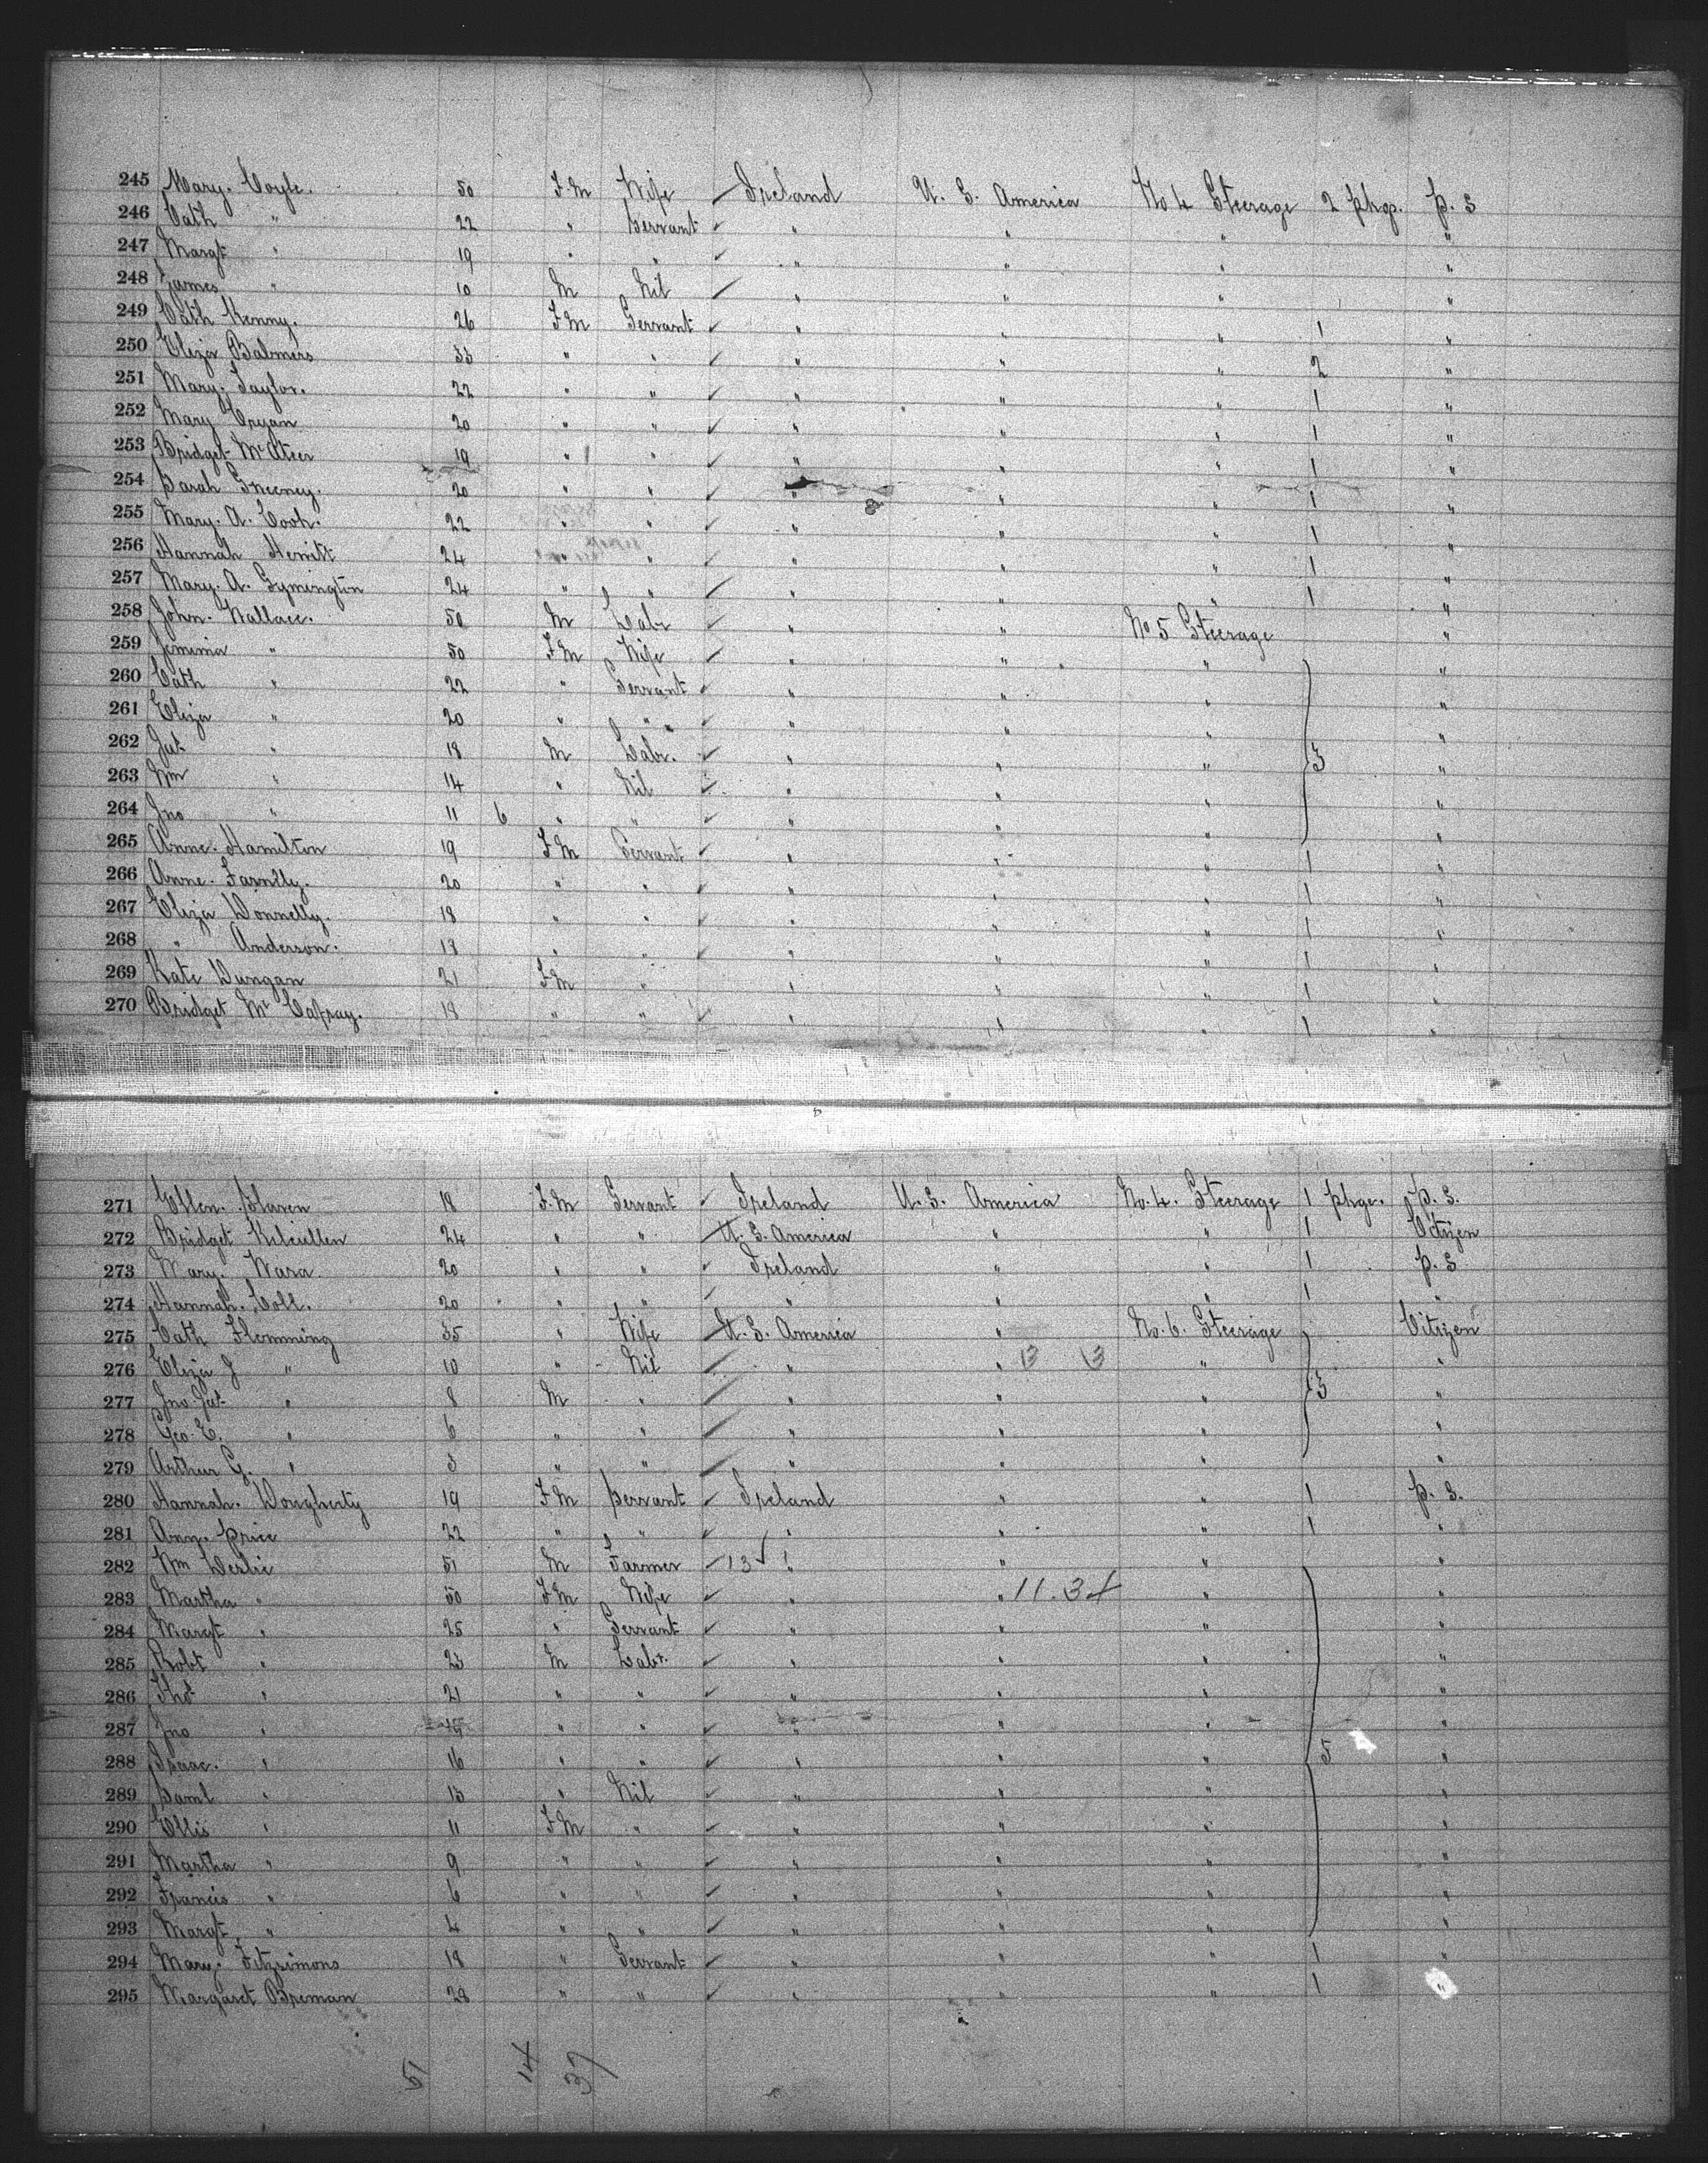 245 Mary. Coyle. 50 F.M Wife Ireland U. S. America No 4 Steerage 2 pkgs. P. S
246 Cath " 22 " Servant " " " "
247 Margt " 19 " " " " " "
248 James " 10 M Nil " " " "
249 Cath Kenny. 26 F.M Servant " " " 1 "
250 Eliza 33 " " " " " 2 "
251 Mary. Taylor. 22 " " " " " 1 "
252 Mary Cryan 20 " " " " " 1 "
253 Bridget McAteer 19 " " " " " 1 "
254 Sarah Sweeney. 20 " " " " " 1 "
255 Mary. A. 22 " " " " " 1 "
256 Hannah 24 " " " " " 1 "
257 Mary. A. Symington 24 " " " " " 1 "
258 John. Wallace. 50 M Labr " " No 5 Steerage "
259 Jemima " 50 F.M Wife " " " "
260 Cath " 22 " Servant " " " "
261 Eliza " 20 " " " " " "
262 Jas " 18 M Labr. " " " 3 "
263 Wm " 14 " Nil " " " "
264 Jno " 11 6 " " " " " "
265 Anne. Hamilton 19 F.M Servant " " " 1 "
266 Anne. 20 " " " " " 1 "
267 Eliza Donnelly. 18 " " " " " 1 "
268 " Anderson. 18 " " " " " 1 "
269 Kate Dungan 21 F.M " " " " 1 "
270 Bridget Mc Cafray. 18 " " " " " 1 "
271 Ellen. 18 F.M Servant Ireland U. S. America No. 4. Steerage 1 pkge. P. S.
272 Bridget Kilcullen 24 " " U. S. America " " 1 Citizen
273 Mary. 20 " " Ireland " " 1 P. S
274 Hannah. Coll. 20 " " " " " 1 "
275 Cath Flemming 35 " Wife U. S. America " No. 6. Steerage Citizen
276 Eliza J " 10 " Nil " " 13 13 " "
277 Jno Jas " 8 M " " " " 3 "
278 Geo. E. " 6 " " " " " "
279 Arthur G. " 3 " " " " " "
280 Hannah. Dougherty 19 F.M Servant Ireland " " 1 P. S.
281 Ann. Price 22 " " " " " 1 "
282 Wm Leslie 51 M Farmer 13 " " " "
283 Martha " 50 F.M Wife " " 11.34 " "
284 Margt " 25 " Servant " " " "
285 Robt " 23 M Labr. " " " "
286 Thos " 21 " " " " " "
287 Jno " " " " " " "
288 Isaac. " 16 " " " " " 5 "
289 Saml " 13 " Nil " " " "
290 Ellis " 11 F.M " " " " "
291 Martha " 9 " " " " " "
292 Francis " 6 " " " " " "
293 Margt. " 4 " " " " " "
294 Mary. Fitzsimons 18 " Servant " " " 1 "
295 Margaret 28 " " " " " 1 "
51 14 37